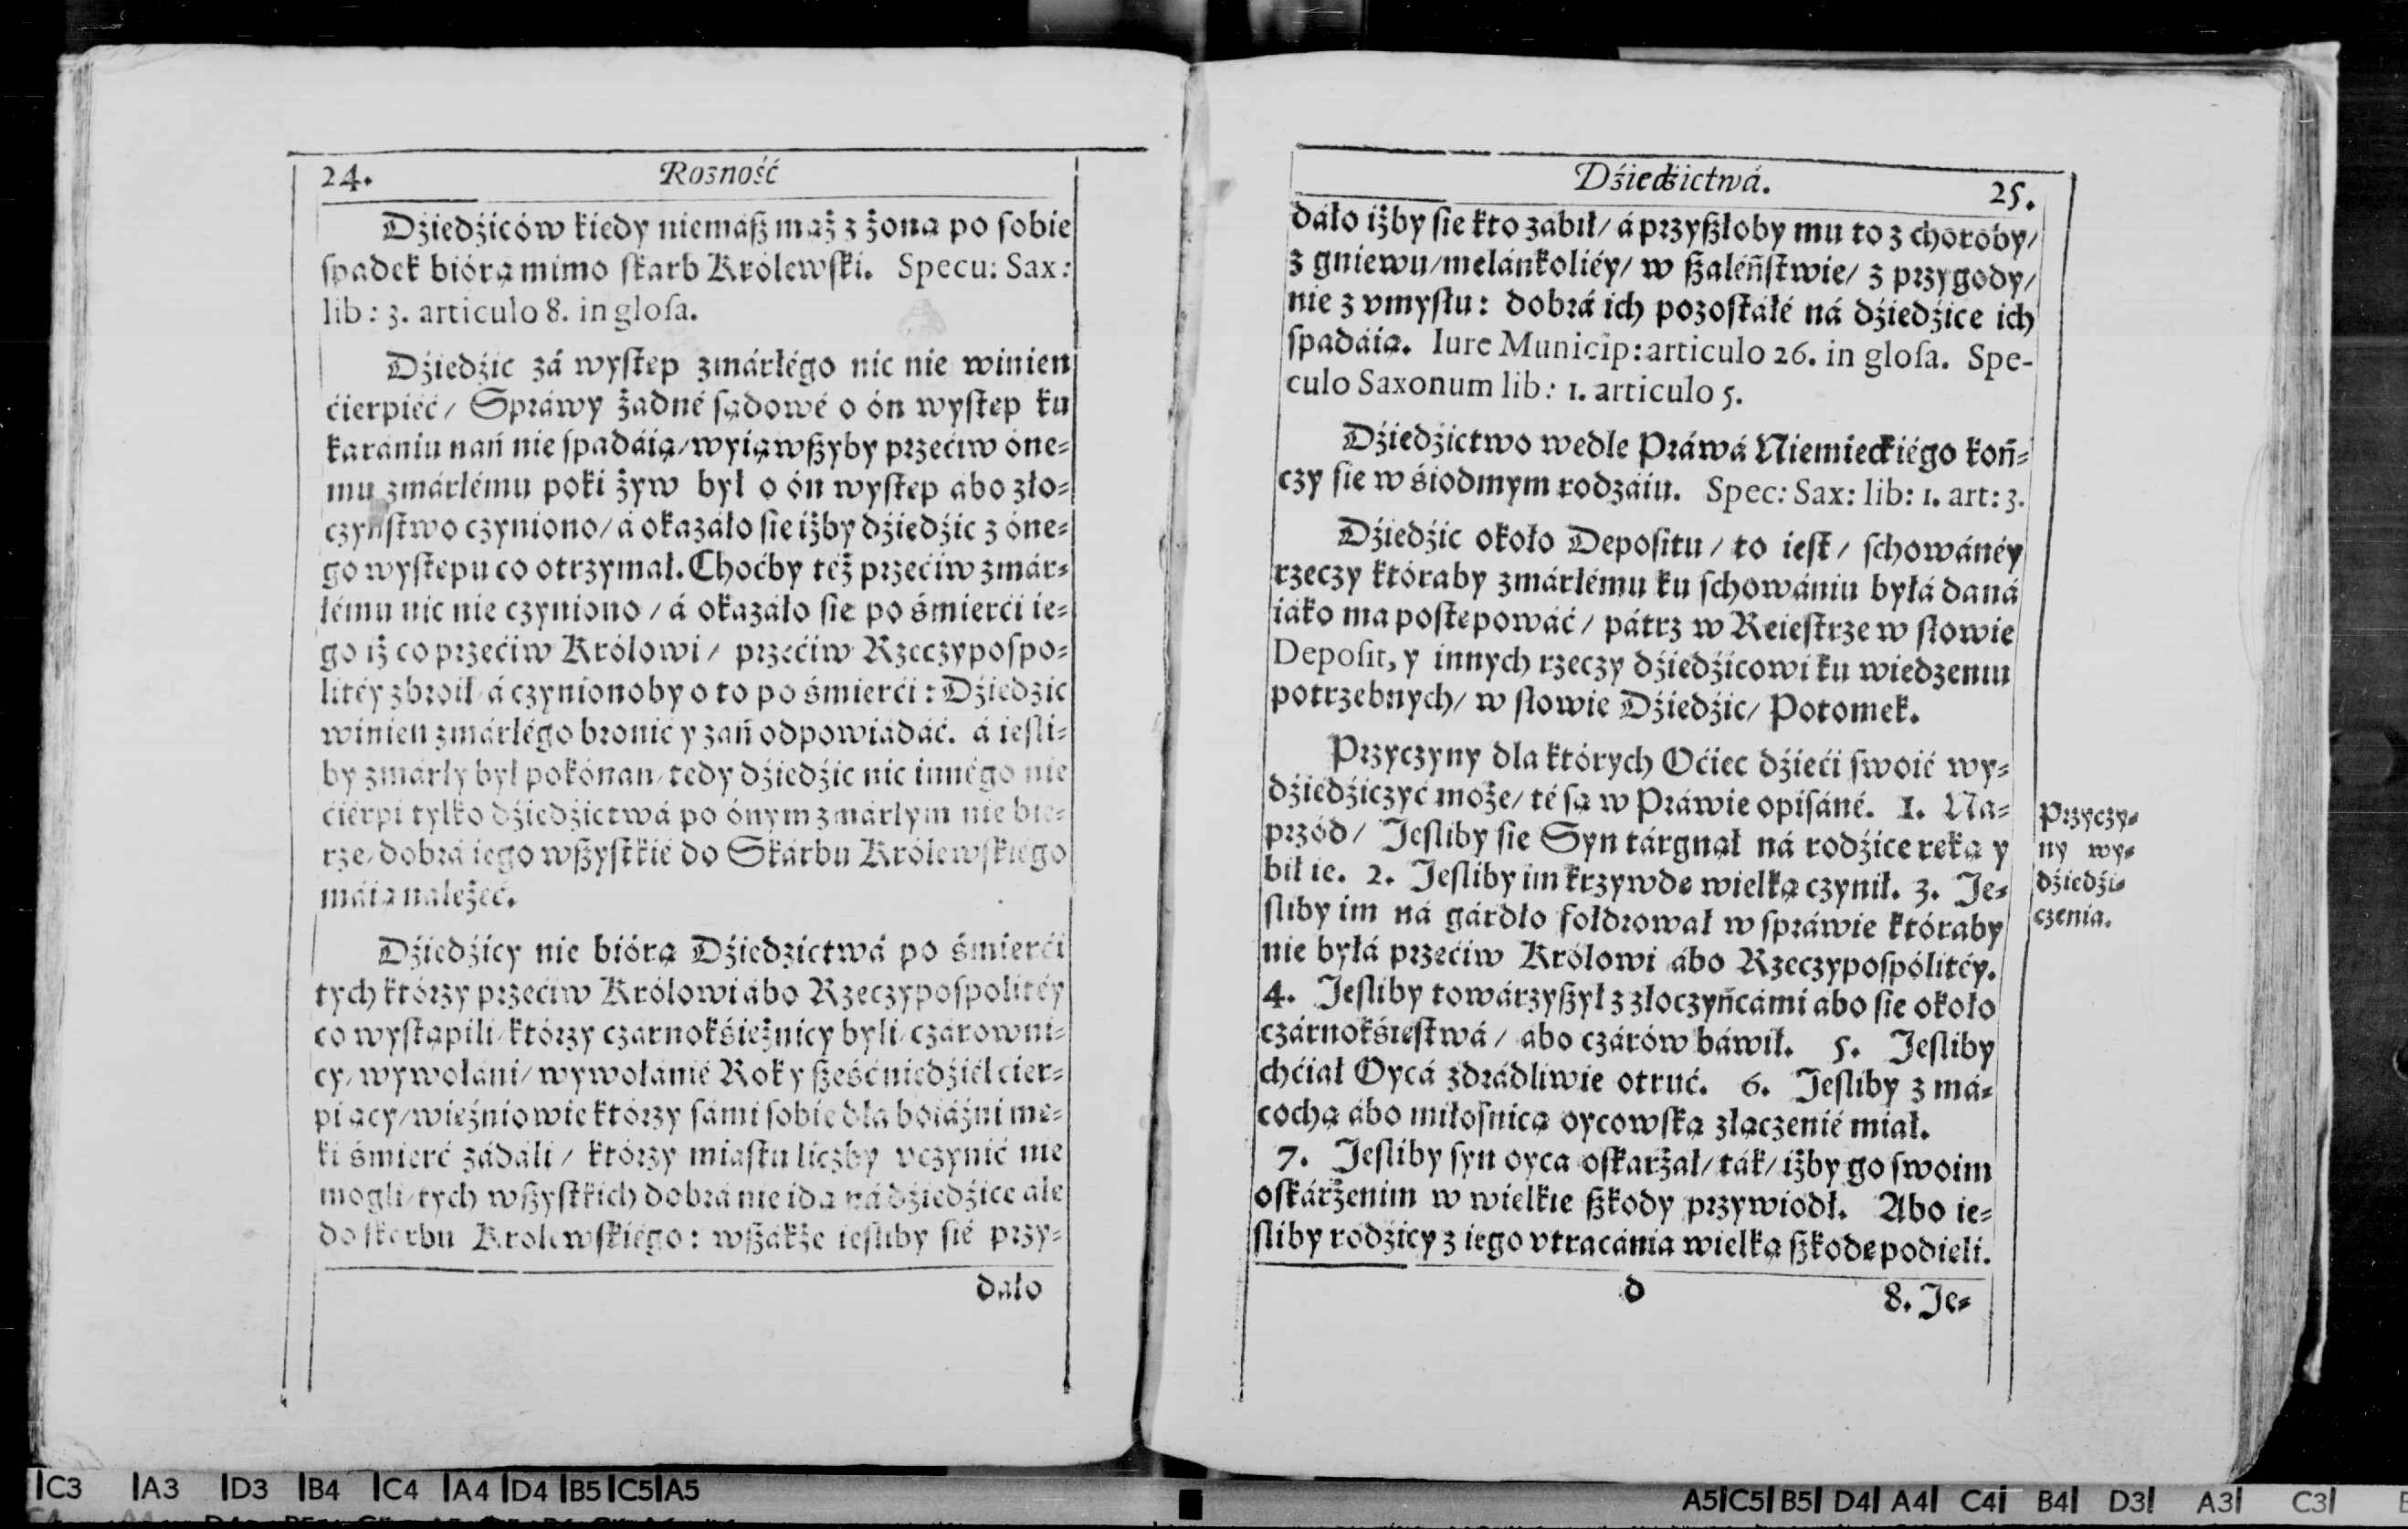 24. Rozność
Dźiedźiców kiedy niemáſz mąż z żoną po ſobie
ſpadek biórą mimo ſkarb Królewſki. Specu: Sax:
lib: 3. articulo 8. in gloſa.
Dźiedźic zá wyſtęp zmárłégo nic nie winien
ćierpiéć / Spráwy żadné ſądowé o ón wyſtęp ku
karániu nań nie ſpadáią / wyiąwſzyby przećiw óne⸗
mu zmárłému poki żyw był o ón wyſtęp ábo zło⸗
czyńſtwo czyniono / á okazáło ſię iżby dźiedźic z óne⸗
go wyſtępu co otrzymał. Choćby téż przećiw zmár⸗
łému nic nie czyniono / á okazáło ſię po śmierći ie⸗
go iż co przećiw Królowi / przećiw Rzeczypoſpo⸗
litéy zbroił / á czynionoby o to po śmierći: Dźiedźic
winien zmárłégo bronić y zań odpowiádáć. á ieſli⸗
by zmárły był pokónan / tedy dźiedźic nic innégo nie
ćiérpi tylko dźiedźictwá po ónym zmárłym nie bie⸗
rze / dobrá iego wſzyſtkié do Skárbu Królewſkiégo
máią należéć.
Dźiedźicy nie biórą Dźiedzictwá po śmierći
tych którzy przećiw Królowi ábo Rzeczypoſpolitéy
co wyſtąpili / którzy czarnokśiężnicy byli / czárowni⸗
cy / wywołáni / wywołánié Rok y ſześć niedźiél cier⸗
piący / więźniowie którzy sámi ſobie dla boiáźni mę⸗
ki śmierć zádáli / którzy miáſtu liczby vczynić nie
mogli / tych wſzyſtkich dobrá nie idą ná dźiedźice ále
do ſkárbu Królewſkiégo: wſzákże ieſliby ſię przy⸗
dáło
Dźiedźictwá. 25.
dáło iżby ſię kto zábił / á przyſzłoby mu to z choroby /
z gniewu / melánkoliéy / w ſzaléńſtwie / z przygody /
nie z vmyſłu: dobrá ich pozoſtáłé ná dźiedźice ich
ſpadáią. Iure Municip: articulo 26. in gloſa. Spe-
culo Saxonum lib: 1. articulo 5.
Dźiedźictwo wedle Práwá Niemieckiégo koń⸗
czy ſię w śiodmym rodzáiu. Spec: Sax: lib: 1. art: 3.
Dźiedźic około Depoſitu / to ieſt / ſchowánéy
rzeczy któraby zmárłému ku ſchowániu byłá daná
iáko ma poſtępowáć / pátrz w Reieſtrze w ſłowie
Depoſit, y innych rzeczy dźiedźicowi ku wiedzeniu
potrzebnych / w ſłowie Dźiedźic / Potomek.
Przyczyny dla których Oćiec dźieći ſwoié wy⸗
dźiedźiczyć może / té ſą w Práwie opiſáné. 1. Na⸗
przód / Jeſliby ſię Syn tárgnął ná rodźice ręką y
bił ie. 2. Jeſliby im krzywdę wielką czynił. 3. Je⸗
ſliby im ná gárdło fołdrował w ſpráwie któraby
nie byłá przećiw Królowi ábo Rzeczypoſpólitéy.
4. Jeſliby towárzyſzył z złoczyńcámi ábo ſię około
czárnokśięſtwá / ábo czárów báwił. 5. Jeſliby
chćiał Oycá zdrádliwie otruć. 6. Jeſliby z má⸗
cochą ábo miłoſnicą oycowſką złączenié miał.
7. Jeſliby ſyn oyca oſkarżał / ták / iżby go swoim
oſkárżenim w wielkie ſzkody przywiodł. Abo ie⸗
ſliby rodźicy z iego vtracánia wielką ſzkodę podięli.
d 8. Je⸗
Przyczy⸗
ny wy⸗
dźiedźi⸗
czenia.
C3 A3 D3 B4 C4 A4 D4 B5 C5 A5
A5 C5 B5 D4 A4 C4 B4 D3 A3 C3